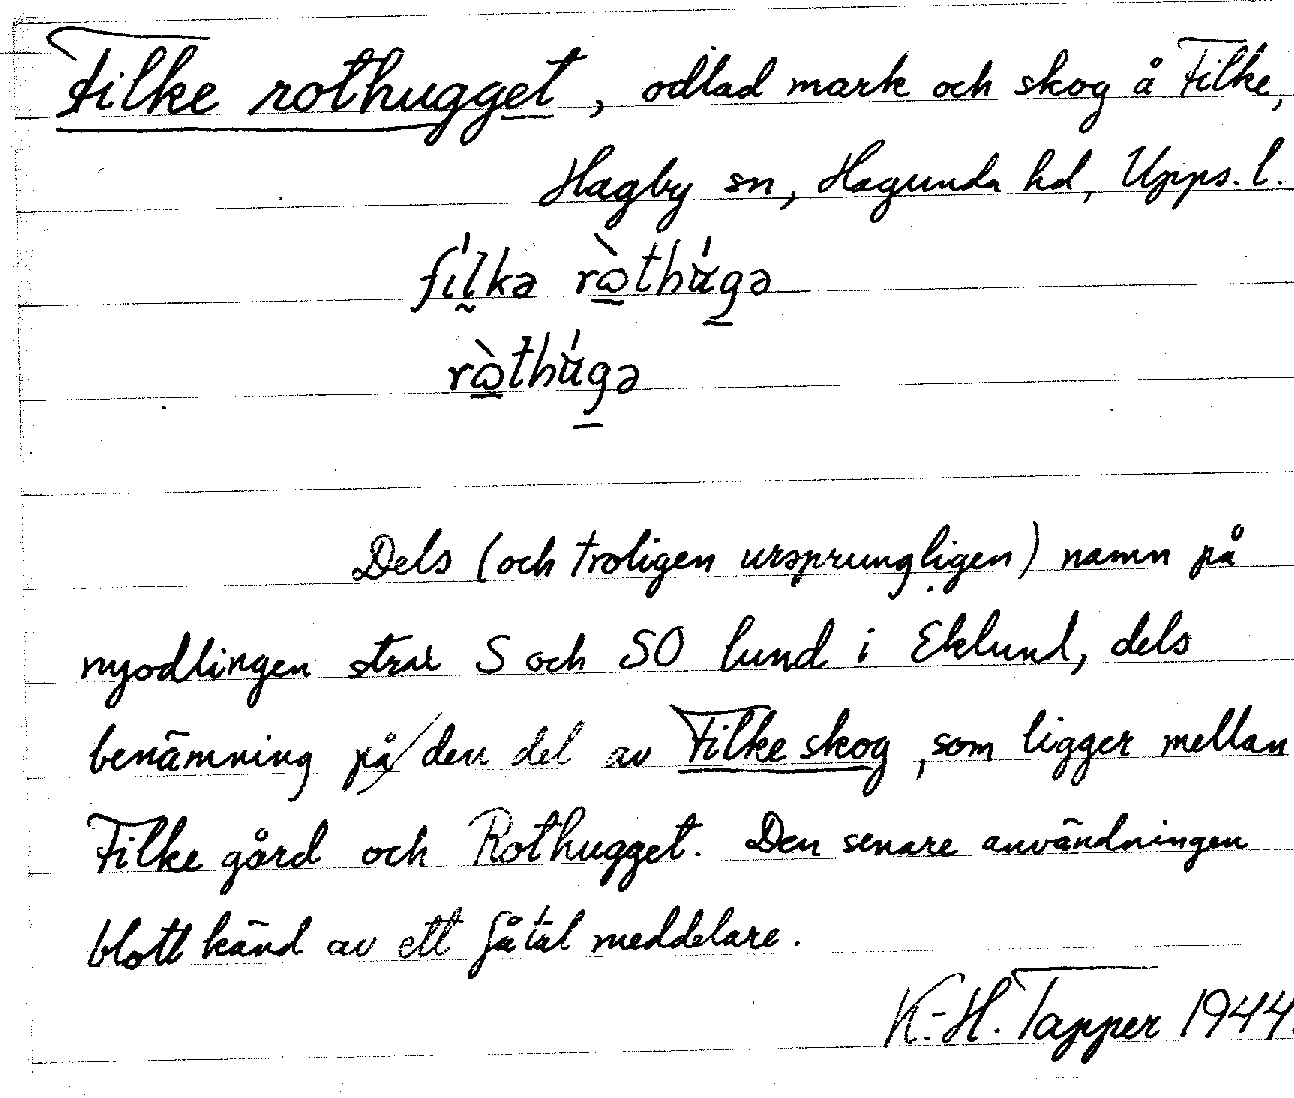 Filke rothugget, odlad mark och skog å Filke,
Hagby sn, Hagunda hd, Upps. l.
Dels (och troligen ursprungligen) namn på
nyodlingen strax S och SO lund i Eklund, dels
benämning på den del av Filke skog, som ligger mellan
Filke gård och Rothugget. Den senare användningen
blott känd av ett fåtal meddelare.
K.-H. Tapper 1944.